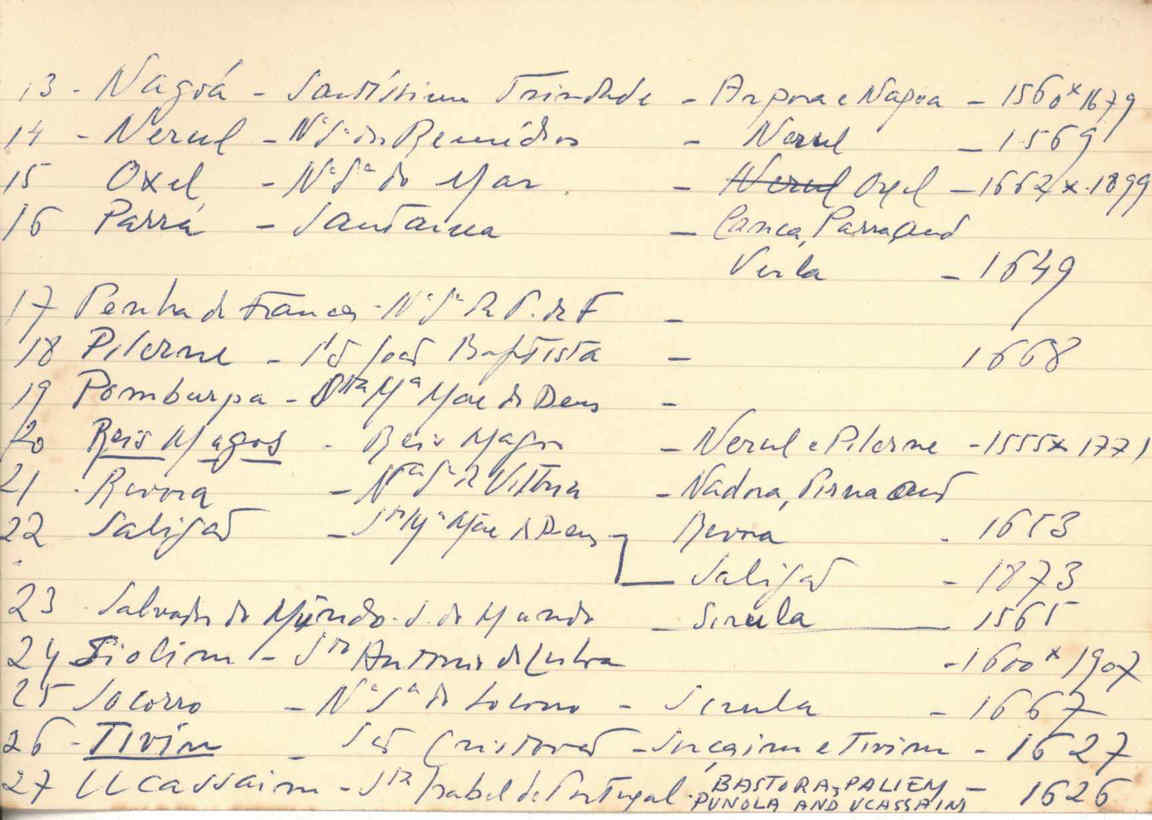 13 - Nagoá - Santíssima Trindade - Arpora e Nagoa - 1560 x 1679
14 - Nerul - Nª Sª dos Remédios - Nerul - 1569
15 Oxel - Nª Sª do Mar - Nerul Oxel - 1662 x 1899
16 Parrá - Santanna - Canca, Parra and
Verla - 1649
17 Penha de França - Nª Sª R P. de F -
18 Pilerne - São João Baptista - 1668
19 Pomburpa - Sta Mª Mãe de Deus -
20 Reis Magos - Reis Magos - Nerul e Pilerne - 1555 x 1771
21 - Revora - Nª Sª R Vitória - Nadora, Pirna and
22 Saligaõ - Sta Mª Mãe de Deus Revora - 1653
Saligaõ - 1873
23 - Salvador do Mundo - S. do Mundo - Serula - 1565
24 Siolim - Sto Antonio de Lisboa - 1600 x 1907
25 Socorro - Nª Sª do Socorro - Serula - 1667
26 - Tivim - São Cristovaõ - Sircaim e Tivim - 1627
27 Ucassaim - Sta Isabel de Portugal - BASTORA, PALIEM -
PUNOLA AND UCASSAIM 1626